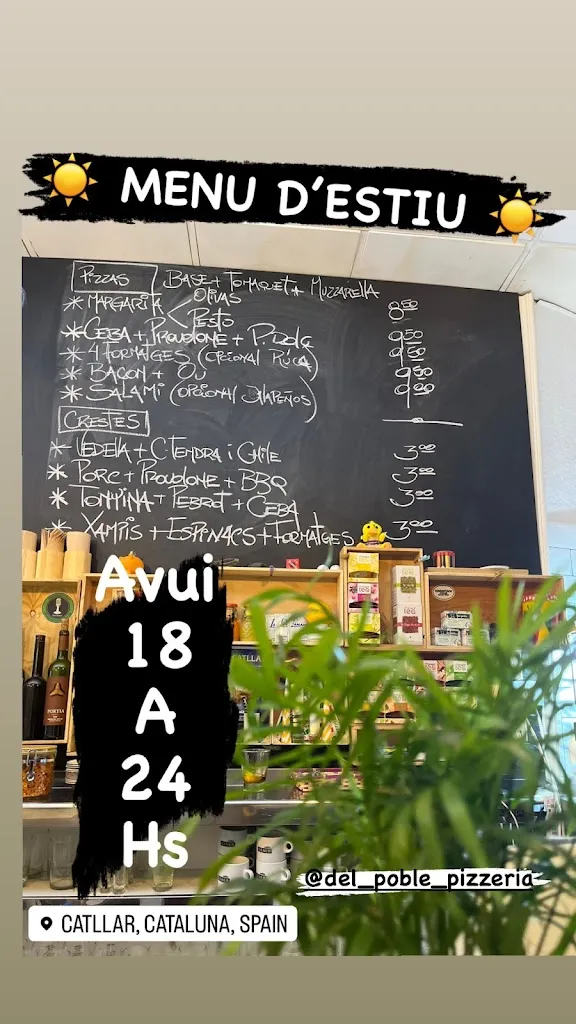 MENU D'ESTIU
PIZZAS BASE + TOMAQUET + MUZZARELLA
* MARGARITA OLIVAS 850
PESTO
* CEBA + PROVOLONE + P. DOLÇ 950
* 4 FORMATGES (OPCIONAL RÚCA) 950
* BACON + OU 950
* SALAMI (OPCIONAL JALAPEÑOS) 900
CRESTES
* VEDELLA + C. TENDRA i CHILE 300
* PORC + PROVOLONE + BBQ 300
* TONYINA + PEBROT + CEBA 300
* XAMPIS + ESPINACS + FORMATGES 300
Avui
18
A
24
Hs
PORTIA
@del_poble_pizzeria
CATLLAR, CATALUNA, SPAIN